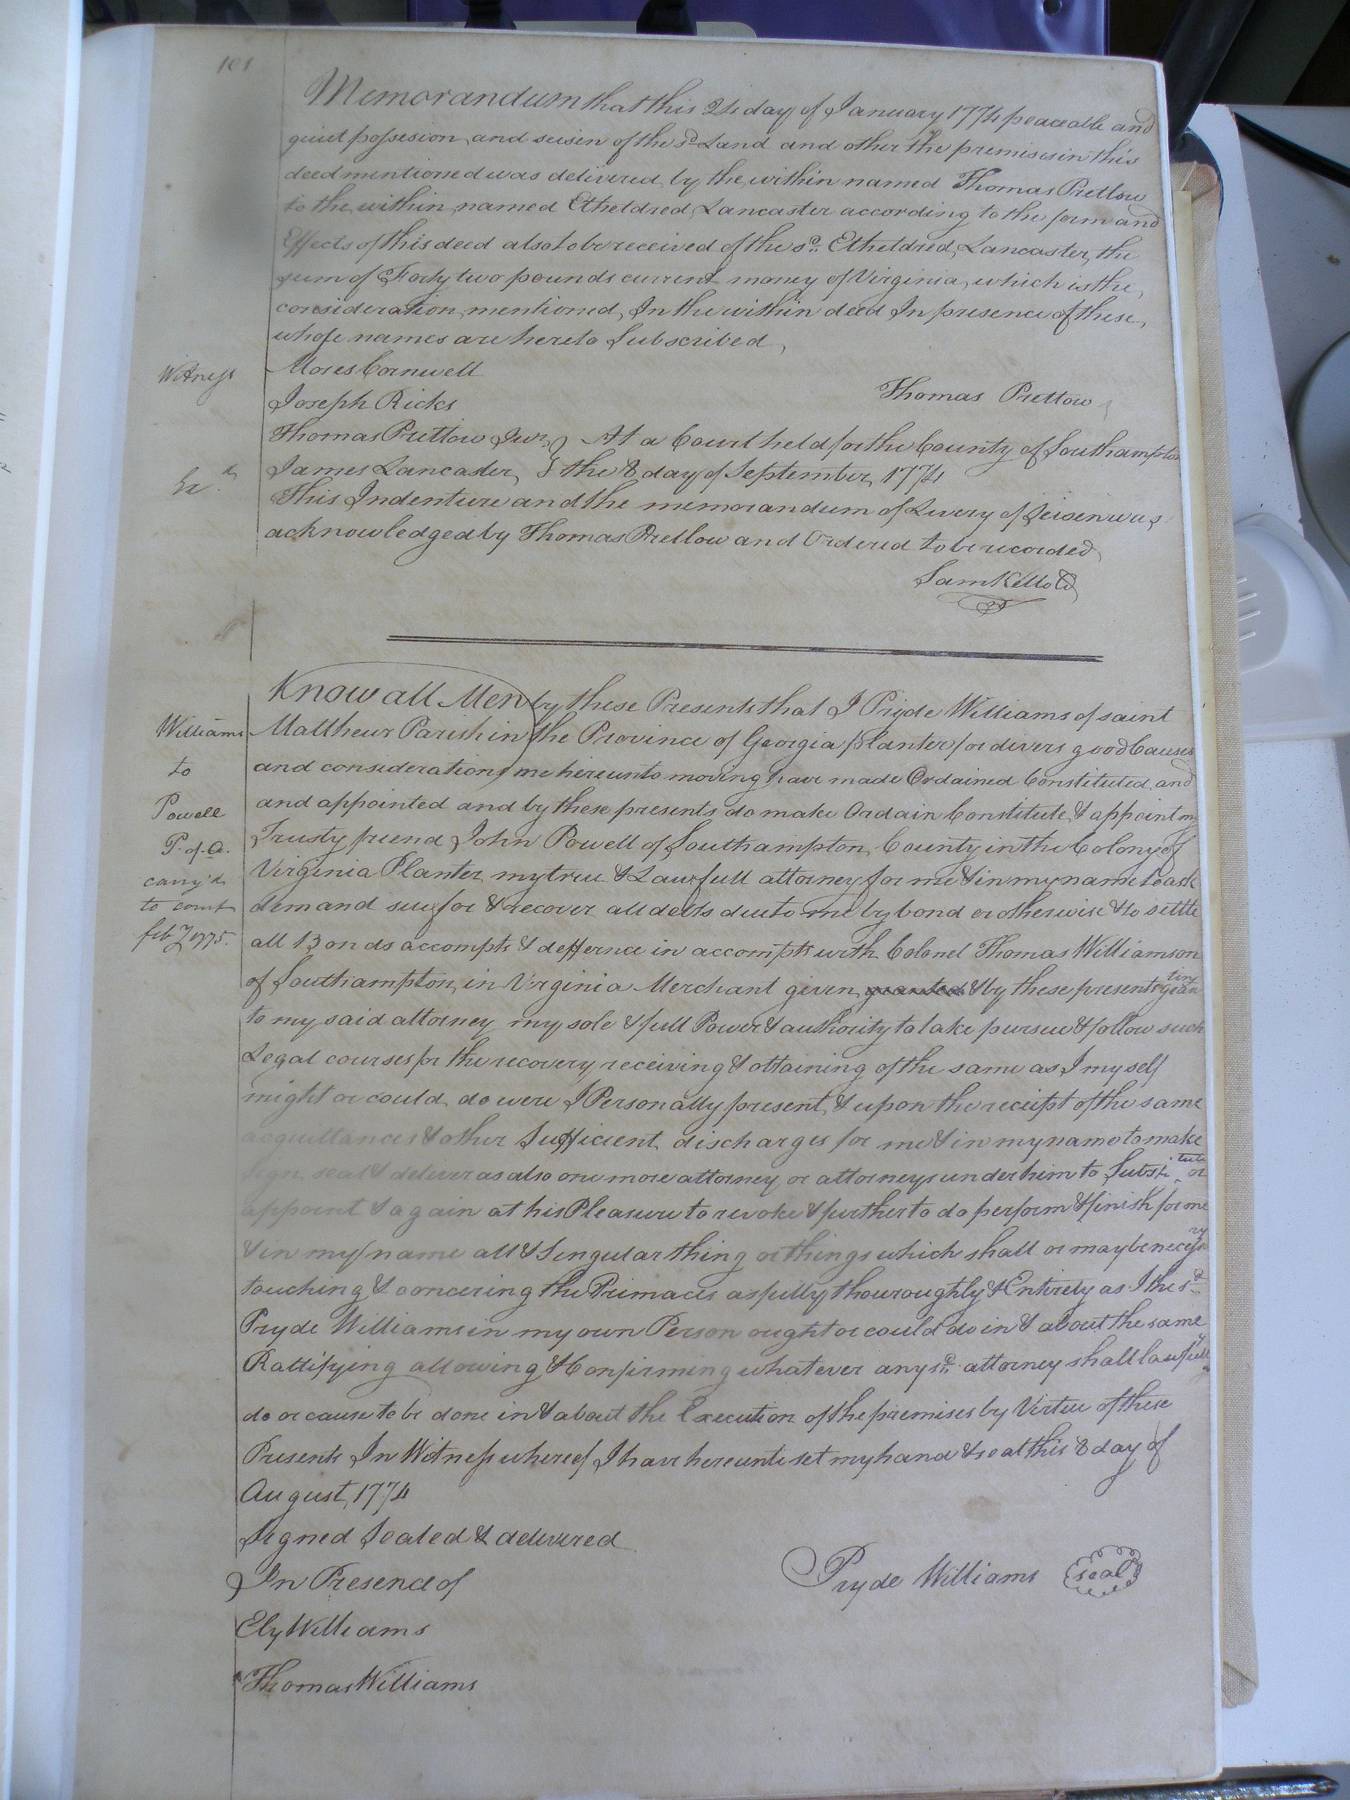 101
Memorandum that this 24 day of January 1774 peaceable and
quiet possesion and seisen of the sd Land and other the premises in this
deed mentioned was delivered by the within named Thomas Pretlow
to the within named Etheldred Lancaster according to the form and
Effects of this deed also to be received of the sd Etheldred Lancaster the
sum of Forty two pounds current money of Virginia which is the
consideration mentioned In the within deed In presence of these
whose names are hereto Subscribed
Witness
Moses Cornwell
Joseph Ricks
Thomas Pretlow
Thomas Pretlow Junr } At a Court held for the County of Southampton
James Lancaster } the 8 day of September 1774
This Indenture and the memorandum of Livery of Seisen was
acknowledged by Thomas Pretlow and Ordered to be recorded
Sam Kello
Know all Men by these Presents that I Pryde Williams of saint
Williams
Matthews Parish in the Province of Georgia planter for divers good Causes
to
and considerations me hereunto moving have made Ordained Constituted and
Powell
and appointed and by these presents do make Ordain Constitute & appoint my
P. of A.
Trusty friend John Powell of Southampton County in the Colony of
carry'd
Virginia Planter my true & Lawfull attorney for me & in my name to ask
to court
demand sue for & recover all debts due to me by bond or otherwise & to settle
feby 1775.
all Bonds accompts & defference in accompts with Colonel Thomas Williamson
of Southampton in Virginia Merchant given granted & by these presents granting
to my said attorney my sole & full Power & authority to take pursue & follow such
Legal courses for the recovery receiving & obtaining of the same as I myself
might or could do were I Personally present & upon the receipt of the same
acquittances & other Sufficient discharges for me & in my name to make
sign seal & deliver as also one more attorney or attorneys under him to Substitute or
appoint & again at his Pleasure to revoke & further to do perform & finish for me
& in my name all & Singular thing or things which shall or may be necessry
touching & concering the Primaces as fully thouroughly & Entirely as I the sd
Pryde Williams in my own Person ought or could do in & about the same
Rattifying allowing & Confirming whatever any sd attorney shall lawfully
do or cause to be done in & about the Execution of the premises by Virtue of these
Presents In Witness whereof I have hereunto set my hand & seal this 8 day of
August 1774
Signed Sealed & delivered
In Presence of
Pryde Williams seal
Ely Williams
Thomas Williams